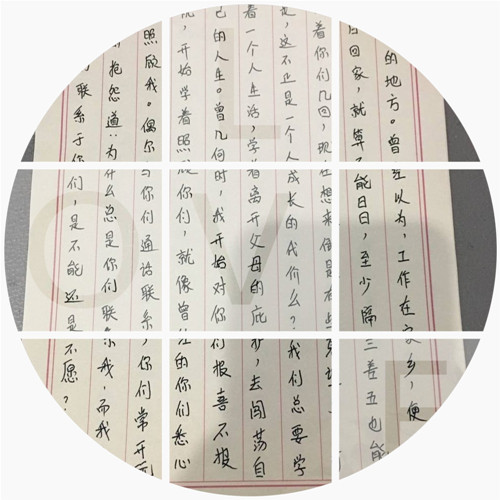 的地方。曾经以为，工作在家乡，便
回家，就算不能日日，至少隔三差五也能
着你们几回，现在想来倒是有些
是，这不正是一个人成长的代价么？我们总要学
着一个人生活，学着离开父母的庇护，去闯荡自
己的人生。曾几何时，我开始对你们报喜不报
忧，开始学着照顾你们，就像曾经的你们悉心
照顾我。偶尔与你们通话联系，你们常开玩
抱怨道：为什么总是你们联系我，而我
联系于你们，是不能还是不愿？
L
O V
E